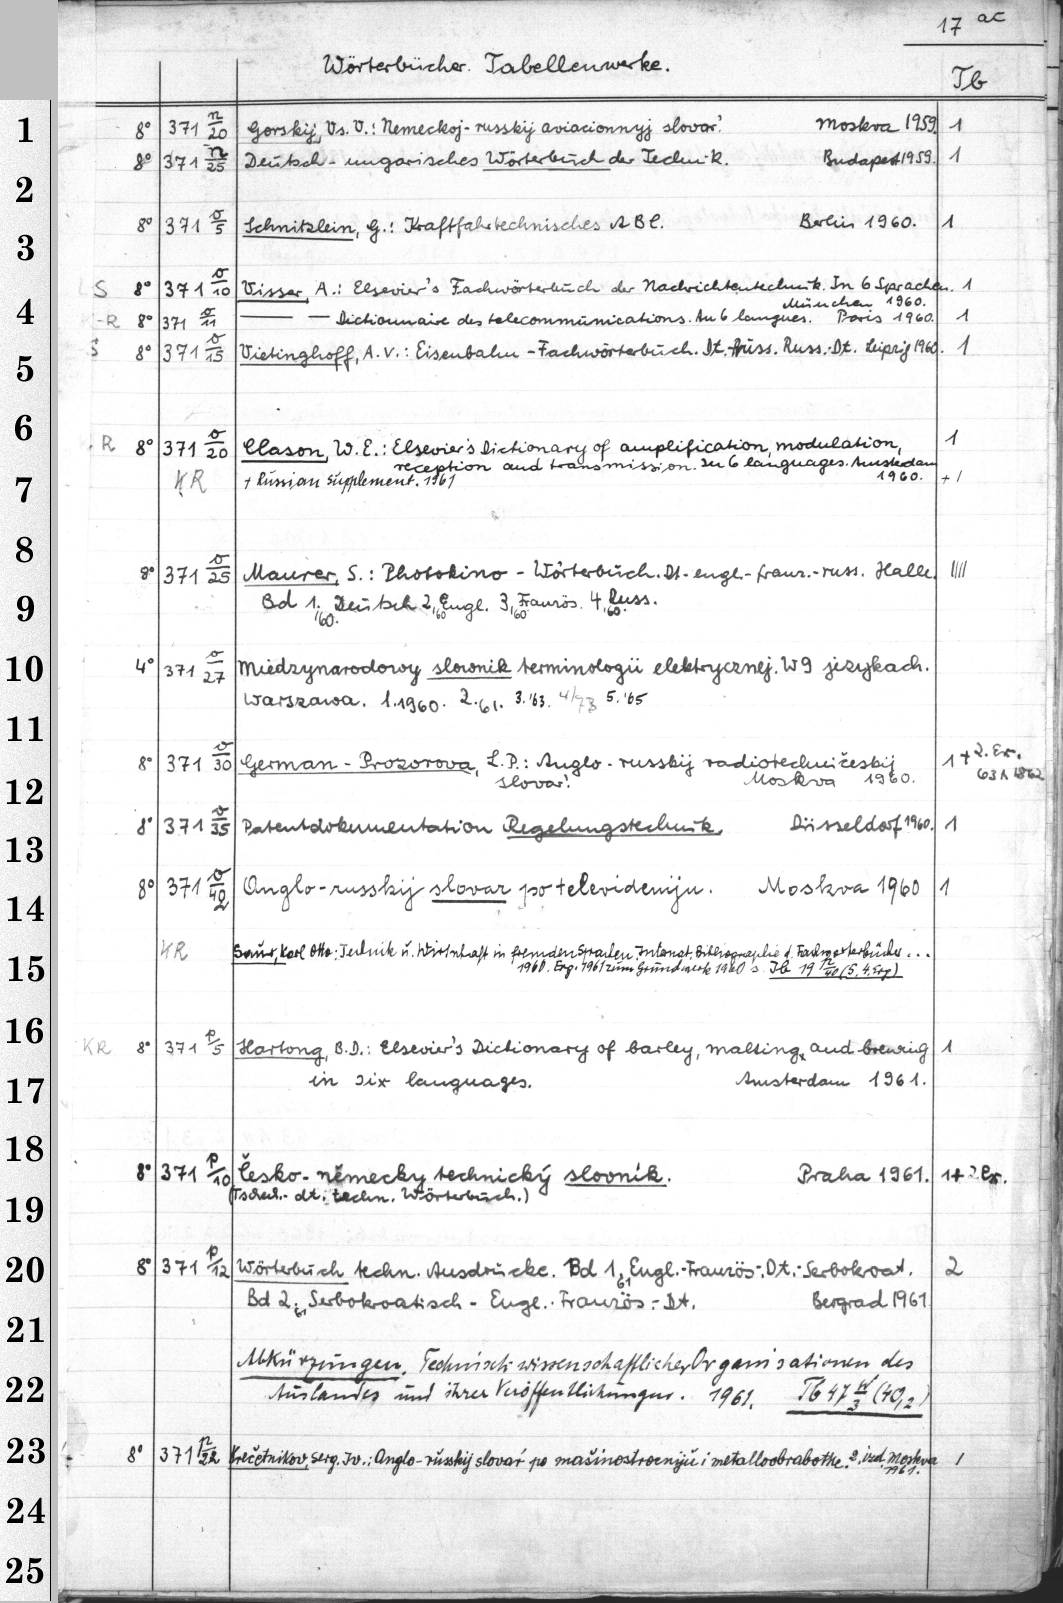 17 ac
Wörterbücher. Tabellenwerke. Tb
1
8° 371 n/20 Gorskij, Vs. V.: Nemeckoj-russkij aviacionnyj slovar'. Moskva 1959. 1
8° 371 n/25 Deutsch-ungarisches Wörterbuch der Technik. Budapest 1959. 1
2
8° 371 o/5 Schnitzlein, G.: Kraftfahrtechnisches ABC. Berlin 1960. 1
3
S 8° 371 o/10 Visser, A.: Elsevier's Fachwörterbuch der Nachrichtentechnik. In 6 Sprachen. 1
München 1960.
4
-R 8° 371 o/11 —— — Dictionnaire des telecommunications. En 6 langues. Paris 1960. 1
S 8° 371 o/15 Vietinghoff, A. v.: Eisenbahn-Fachwörterbuch. Dt.-Russ. Russ.-Dt. Leipzig 1960. 1
5
6
R 8° 371 o/20 Clason, W. E.: Elsevier's Dictionary of amplification, modulation, 1
reception and transmission. In 6 languages. Amsterdam
KR + Russian Supplement. 1961 1960. +1
7
8
8° 371 o/25 Maurer, S.: Photokino-Wörterbuch. Dt-engl.-franz.-russ. Halle. ||||
9
Bd 1, 60. Deutsch 2, 60 Engl. 3, 60 Französ. 4, 60. Russ.
10
4° 371 o/27 Miedzynarodowy słownik terminologii elektrycznej. W 9 językach.
Warszawa. 1.1960. 2.61. 3.'63. 4/73 5.'65
11
8° 371 o/30 German-Prozorova, L.P.: Anglo-russkij radiotechničeskij 1 + 2. Ex.
slovar'. Moskva 1960. 63 A 1862
12
8° 371 o/35 Patentdokumentation Regelungstechnik. Düsseldorf 1960. 1
13
8° 371 o/40 Anglo-russkij slovar po televideniju. Moskva 1960 1
14
KR Saur, Karl Otto: Technik u. Wirtschaft in fremden Sprachen. Internat. Bibliographie d. Fachwörterbücher ...
15
1960. Erg. 1961 zum Grundwerk 1960 s. Ib 19 n/40 (5, 4. Erg)
16
KR 8° 371 p/5 Hartong, B.D.: Elsevier's Dictionary of barley, malting, and brewing 1
17
in six languages. Amsterdam 1961.
18
8° 371 p/10 Česko-německy technický slovník. Praha 1961. 1+2. Ex.
(Tschech.-dt. techn. Wörterbuch.)
19
20
8° 371 p/12 Wörterbuch techn. Ausdrücke. Bd 1, 61 Engl.-Französ.-Dt.-Serbokroat. 2
Bd 2, 61 Serbokroatisch-Engl.-Französ.-Dt. Bergrad 1961
21
Abkürzungen, Technisch-wissenschaftlicher Organisationen des
22
Auslandes und ihrer Veröffentlichungen. 1961. Tb 47 w/3 (40,2)
23
8° 371 p/22 Krečetnikov, Serg. Iv.: Anglo-russkij slovar' po mašinostroeniju i metalloobrabotke. 2. izd. Moskva 1
1961.
24
25